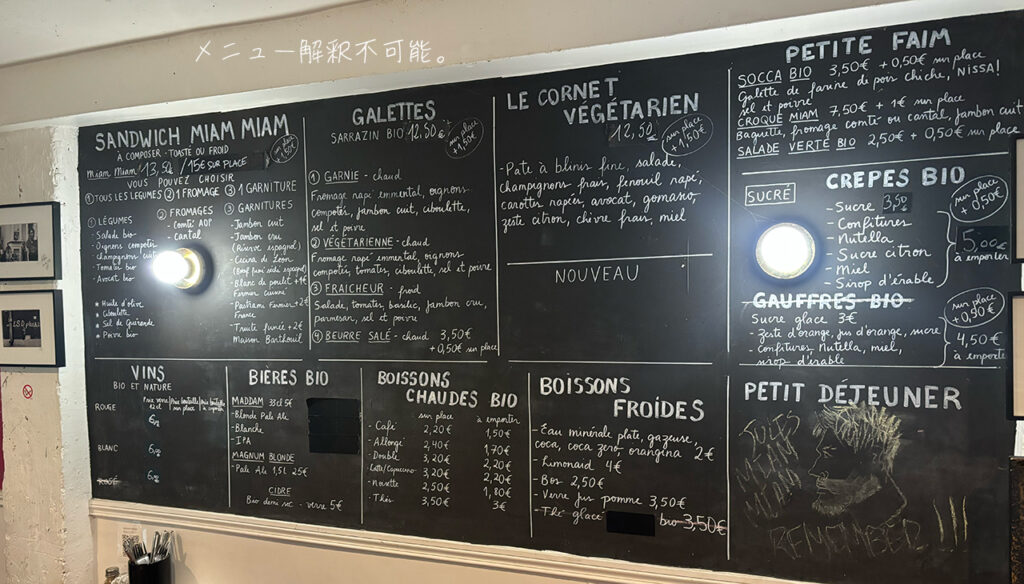 メニュー解釈不可能。
SANDWICH MIAM MIAM
À COMPOSER - TOASTÉ OU FROID
Miam Miam 13,50 / 15€ SUR PLACE
VOUS POUVEZ CHOISIR
① TOUS LES LEGUMES ② 1 FROMAGE ③ 1 GARNITURE
① LÉGUMES
Salade bio
Oignons compotés
Champignons cuits
Tomate bio
Avocat bio
* Huile d'olive
Ciboulette
* Sel de Guérande
* Poivre bio
② FROMAGES
- Comté AOP
- Cantal
③ GARNITURES
Jambon cuit
Jambon cru
(Réserve espagnol)
Cecina de León
Blanc de poulet +1€
Fermier cuisiné
Pastrami Fermier +2€
France
- Truite fumée +2€
Maison Barthouil
GALETTES
SARRAZIN BIO 12,50€
sur place
+1,50€
① GARNIE - chaud
Fromage rapé emmental, oignons
compotés, jambon cuit, ciboulette,
sel et poivre
② VÉGÉTARIENNE - chaud
Fromage rapé emmental, oignons
compotés, tomates, ciboulette, sel et poivre
③ FRAICHEUR - froid
Salade, tomates, basilic, jambon cru,
parmesan, sel et poivre
④ BEURRE SALÉ - chaud 3,50€
+0,50€ sur place
LE CORNET
VÉGÉTARIEN
12,50
sur place
+1,50€
- Pate à blinis fine, salade,
champignons frais, fenouil rapé,
carottes rapées, avocat, gomasio,
zeste citron, chivre frais, miel
NOUVEAU
PETITE FAIM
SOCCA BIO 3,50€ +0,50€ sur place
Galette de farine de pois chiche, NISSA!
sel et poivre
CROQUE MIAM 7,50€ + 1€ sur place
Baguette, fromage comté ou cantal, jambon cuit
SALADE VERTE BIO 2,50€ + 0,50€ sur place
SUCRÉ
CREPES BIO
- Sucre 3,50
- Confitures
- Nutella
- Sucre citron
- Miel
- Sirop d'érable
sur place
+ 0,50€
5,00€
à emporter
GAUFFRES BIO
Sucre glace 3€
- Zeste d'orange, jus d'orange, sucre
- Confitures Nutella, miel,
sirop d'érable
sur place
+0,50€
4,50€
à emporter
VINS
BIO ET NATURE
ROUGE
BLANC
BIÈRES BIO
MADDAM 33cl 5€
- Blonde Pale Ale
- Blanche
- IPA
MAGNUM BLONDE
- Pale Ale 1,5L 25€
CIDRE
Bio demi sec - verre 5€
BOISSONS
CHAUDES BIO
sur place à emporter
- Café 2,20€ 1,50€
- Allongé 2,40€ 1,70€
- Double 3,20€ 2,20€
- Latte/Capuccino 3,20€ 2,20€
- Noisette 2,50€ 1,80€
- Thés 3,50€ 3€
BOISSONS
FROIDES
- Eau minérale plate, gazeuse,
coca, coca zero orangina 2€
- Limonaid 4€
- Bos 2,50€
- Verre jus pomme 3,50€
- Thé glacé bio 3,50€
PETIT DÉJEUNER
JULES
MIAM
MIAM
REMEMBER !!!